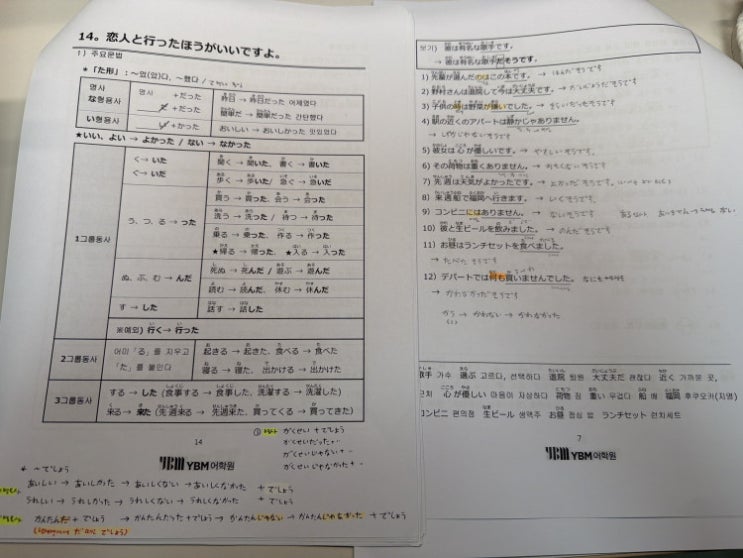 14。恋人と行ったほうがいいですよ。
1) 주요문법
★「た形」: ~었(았)다, ~했다
명사 명사 +だった 昨日 → 昨日だった 어제였다
な형용사 +だった 簡単だ → 簡単だった 간단했다
い형용사 +かった おいしい → おいしかった 맛있었다
★いい、よい → よかった / ない → なかった
1그룹동사
く→ いた 聞く → 聞いた、書く → 書いた
ぐ→ いだ 歩く → 歩いた / 急ぐ → 急いだ
う、つ、る → った 買う → 買った、会う → 会った
洗う → 洗った / 待つ → 待った
乗る → 乗った、作る → 作った
★帰る → 帰った、★入る → 入った
ぬ、ぶ、む → んだ 死ぬ → 死んだ / 遊ぶ → 遊んだ
読む → 読んだ、休む → 休んだ
す → した 話す → 話した
※예외) 行く → 行った
2그룹동사 어미「る」를 지우고 「た」를 붙인다
起きる → 起きた、食べる → 食べた
寝る → 寝た、出かける → 出かけた
3그룹동사 する → した (食事する → 食事した、洗濯する → 洗濯した)
来る → 来た (先週来る → 先週来た、買ってくる → 買ってきた)
14
YBM어학원
がくせい +でしょう
がくせいだった
がくせいじゃない
がくせいじゃなかった
~でしょう
おいしい → おいしかった → おいしくない → おいしくなかった +でしょう
うれしい → うれしかった → うれしくない → うれしくなかった +でしょう
かんたんだ +でしょう → かんたんだった +でしょう → かんたんじゃない → かんたんじゃなかった +でしょう
보기) 彼は有名な歌手です。
→ 彼は有名な歌手だそうです。
1) 先輩が選んだのはこの本です。 → ほんだそうです
2) 野村さんは退院して今は大丈夫です。 → だいじょうぶだそうです
3) 子供の時は野菜が嫌いでした。 → きらいだったそうです
4) 駅の近くのアパートは静かじゃありません。
→ しずかじゃないそうです
5) 彼女は心が優しいです。 → やさしいそうです
6) その荷物は重くありません。 → おもくないそうです
7) 先週は天気がよかったです。 → よかったそうです
8) 来週船で福岡へ行きます。 → いくそうです
9) コンビニにはありません。 → ないそうです
10) 彼と生ビールを飲みました。 → のんだそうです
11) お昼はランチセットを食べました。
→ たべたそうです
12) デパートでは何も買いませんでした。
→ かわなかったそうです
かう → かわない → かわなかった
歌手 가수 選ぶ 고르다, 선택하다 退院 퇴원 大丈夫だ 괜찮다 近く 가까운 곳,
근처 心が優しい 마음이 자상하다 荷物 짐 重い 무겁다 船 배 福岡 후쿠오카(지명)
コンビニ 편의점 生ビール 생맥주 お昼 점심 밥 ランチセット 런치세트
7
YBM어학원